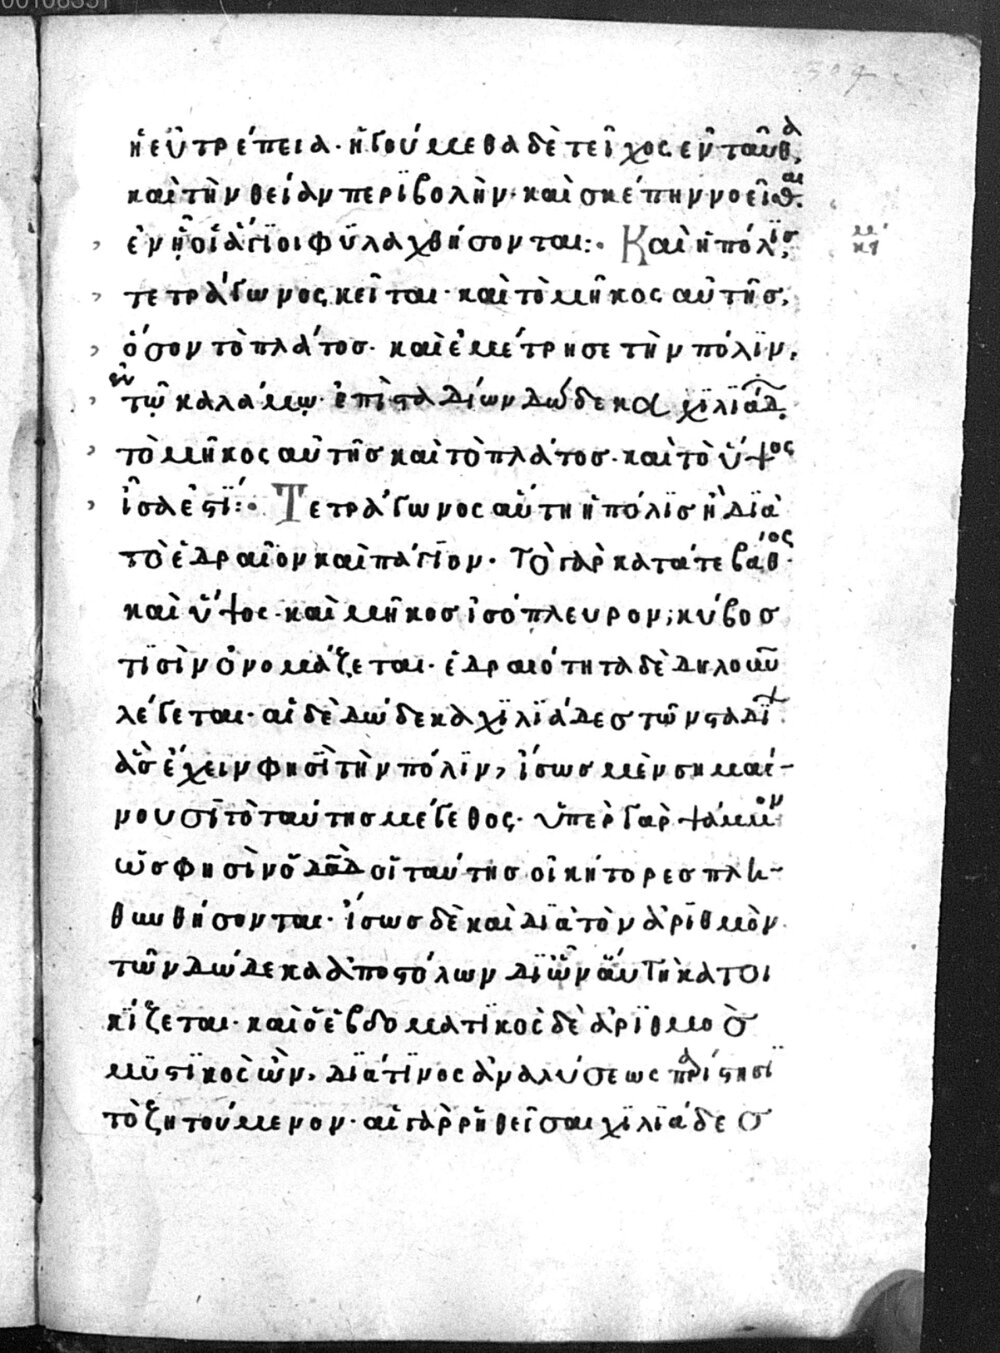 ἡ εὐτρέπεια· ἡγούμεθα δὲ τεῖχος ἐνταῦθα,
καὶ τὴν θείαν περιβολὴν· καὶ σκέπην νοεῖσθαι.
ἐν ᾗ οἱ ἅγϊοι φϋλαχθήσονται:· Καὶ ἡ πόλϊσ,
τετράγωνος κεῖται· καὶ τὸ μῆκος αὐτῆσ,
ὅσον τὸ πλάτοσ· καὶ ἐμέτρησε τὴν πόλϊν,
ἐν τῷ καλάμῳ· ἐπὶ σταδίων δώδεκα χϊλϊάδ.
τὸ μῆκος αὐτῆσ καὶ τὸ πλάτοσ· καὶ τὸ ὕψος
ἶσα ἐστϊ:· Τετράγωνος αὕτη ἡ πόλϊσ ἢ δϊὰ
τὸ ἑδραῖον καὶ πάγϊον· Τὸ γὰρ κατά τε βάθος·
καὶ ὕψος· καὶ μῆκοσ ἰσόπλευρον, κύβοσ
τϊσὶν ὀνομάζεται· ἑδραιότητα δὲ δηλοῦν
λέγεται· αἱ δὲ δώδεκα χϊλϊάδεσ τῶν σταδϊ
ἃσ ἔχειν φησῒ τὴν πόλϊν, ἴσωσ μὲν σημαί-
νουσϊ τὸ ταύτησ μέγεθος· ὑπὲρ γὰρ ψάμμον
ὥσ φησὶν ὁ δαδ οἱ ταύτησ οἰκήτορεσ πλη-
θυνθήσονται· ἴσωσ δὲ καὶ δϊὰ τὸν ἀρϊθμὸν
τῶν δώδεκα ἀποστόλων δϊ ὧν αὕτη κατοι
κϊζεται· καὶ ὁ ἑβδοματϊκὸς δὲ ἀρϊθμὸσ
μϋστϊκὸς ὢν, δϊά τϊνος ἀναλύσεως παρίστησϊ
τὸ ζητούμενον· αἱ γὰρ ῥηθεῖσαι χϊλϊάδεσ